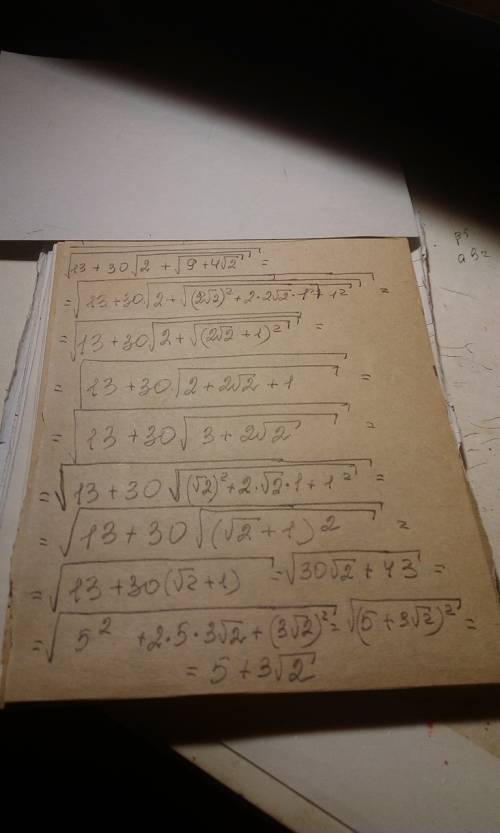 √(13 + 30√(2 + √(9 + 4√2))) =
= √(13 + 30√(2 + √((2√2)² + 2·2√2·1 + 1²))) =
= √(13 + 30√(2 + √((2√2 + 1)²))) =
= √(13 + 30·√(2 + 2√2 + 1)) =
= √(13 + 30√(3 + 2√2)) =
= √(13 + 30√((√2)² + 2·√2·1 + 1²)) =
= √(13 + 30√((√2 + 1)²)) =
= √(13 + 30(√2 + 1)) = √(30√2 + 43) =
= √(5² + 2·5·3√2 + (3√2)²) = √((5 + 3√2)²) =
= 5 + 3√2